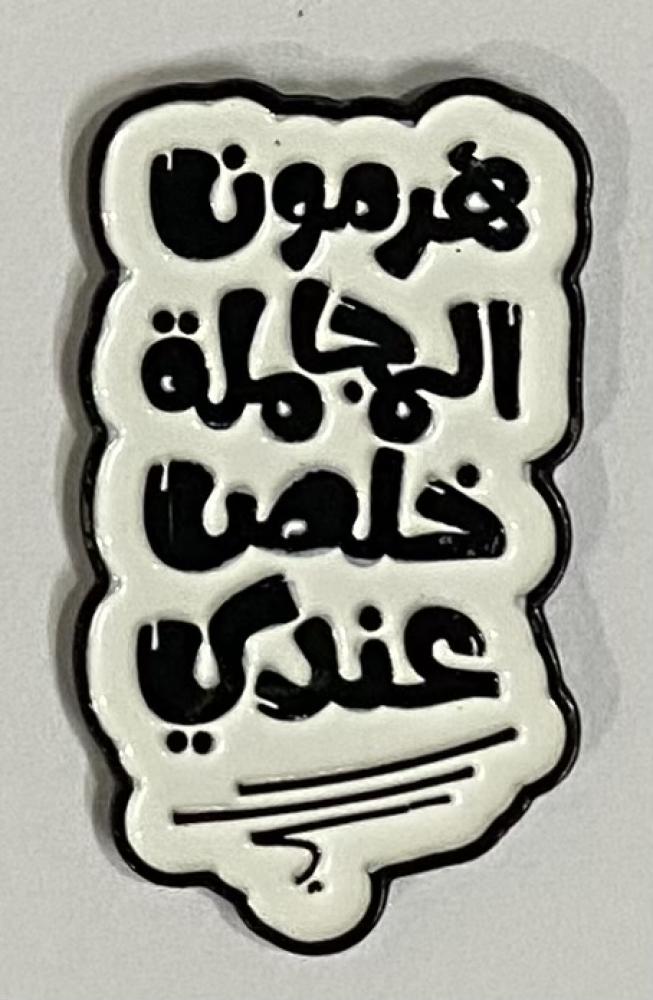 هرمون
المجاملة
خلص
عندي